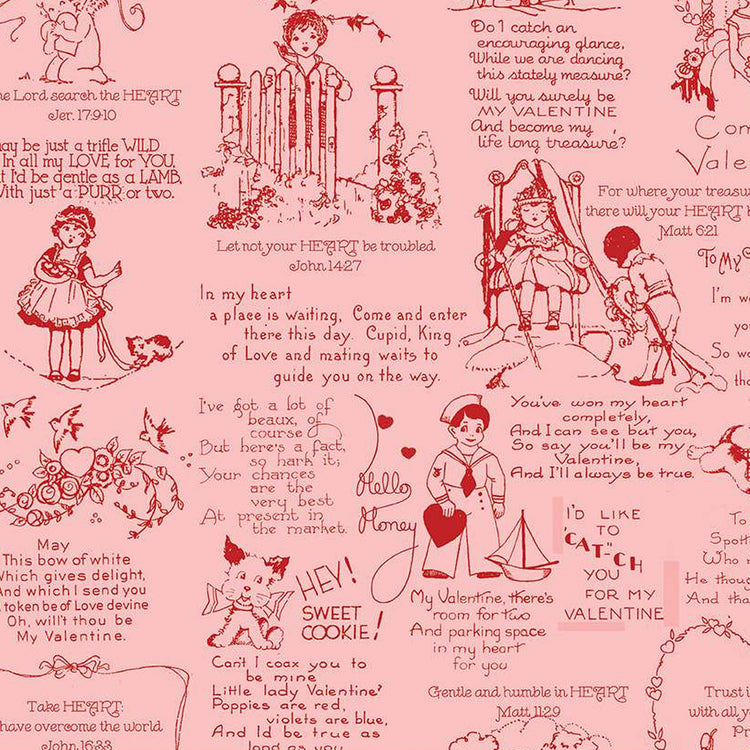 Lord search the HEART
Jer. 17:9-10
be just a trifle WILD
In all my LOVE for YOU,
I'd be gentle as a LAMB,
With just a PURR or two.
Do I catch an
encouraging glance,
While we are dancing
this stately measure?
Will you surely be
MY VALENTINE
And become my
life long treasure?
Let not your HEART be troubled
John 14:27
For where your
there will your HEART
Matt 6:21
To My
In my heart
a place is waiting, Come and enter
there this day. Cupid, King
of Love and mating waits to
guide you on the way.
I've got a lot of
beaux, of
course
But here's a fact,
so hark it;
Your chances
are the
very best
At present in
the market.
Hello
Honey
You've won my heart
completely,
And I can see but you,
So say you'll be my
Valentine,
And I'll always be true.
I'D LIKE
TO
"CAT-"CH
YOU
FOR MY
VALENTINE
May
This bow of white
Which gives delight,
And which I send you
token be of Love devine
Oh, will't thou be
My Valentine.
HEY!
SWEET
COOKIE!
My Valentine, there's
room for two
And parking space
in my heart
for you
Can't I coax you to
be mine
Little lady Valentine?
Poppies are red,
violets are blue,
And I'd be true as
long as you
Gentle and humble in HEART
Matt 11:29
Take HEART:
have overcome the world
John 16:33